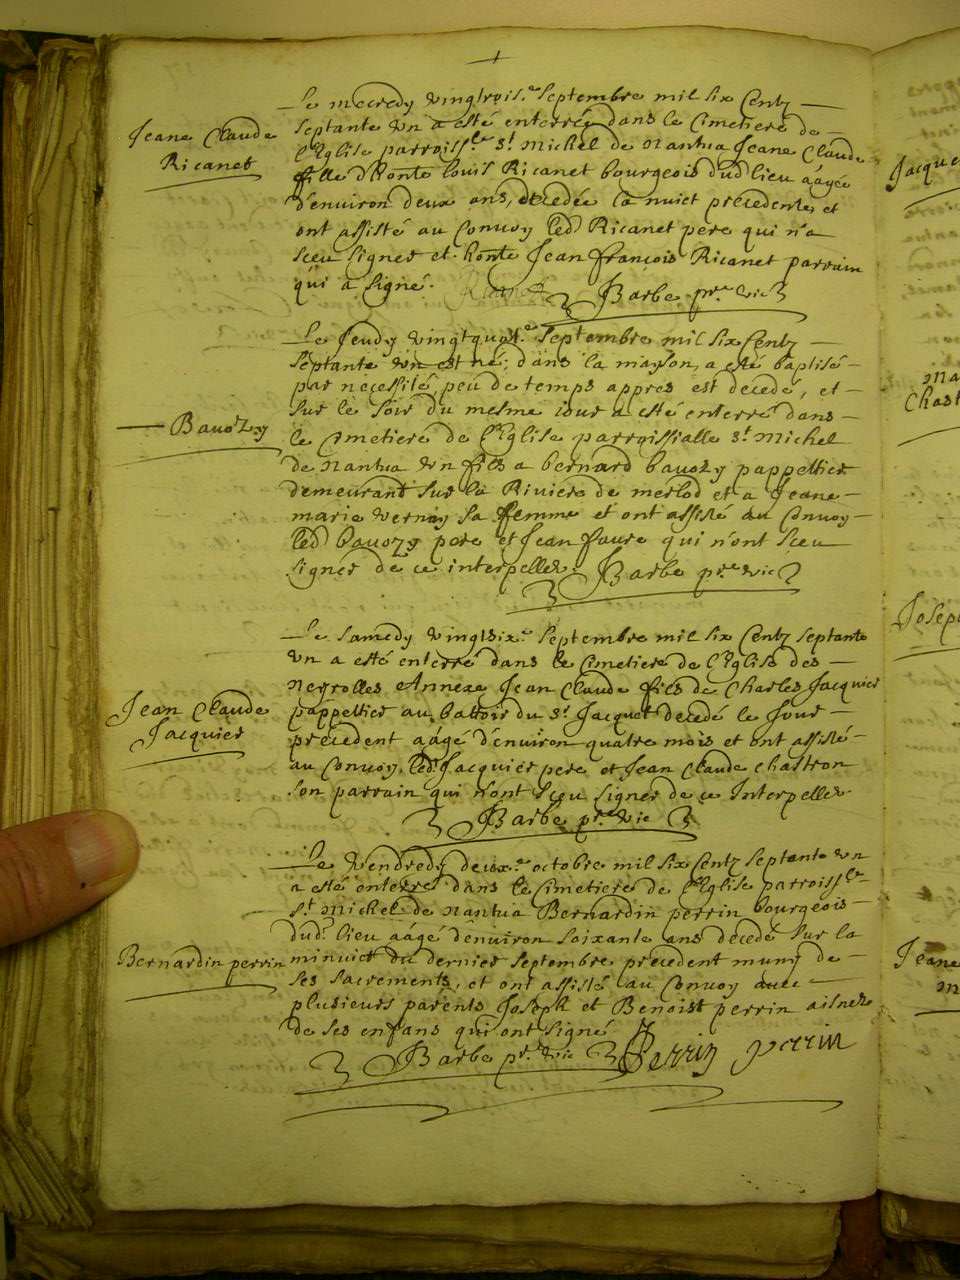 Jeane Claude
Ricanet
Le mecredy vingtrois.e Septembre mil six Centz
septante Vn a esté enterrée dans le Cimetiere de
l'Eglise parroiss.le S.t Michel de Nantua Jeane Claude
fille d'honte Louis Ricanet bourgeois dud lieu aagée
d'enuiron deux ans, decedée la nuict precedente, et
ont assisté au Conuoy led Ricanet pere qui n'a
sceu signer et honte Jean françois Ricanet parrain
qui a signé.
Barbe pr.e vic
Bauozy
Le Jeudy vingtquat.e Septembre mil six Centz
septante vn est né, dans la mayson, a esté baptisé
par necessité, peu de temps appres est decedé, et
sur le soir du mesme iour a esté enterré dans
le Cimetiere de l'Eglise parroissialle S.t Michel
de Nantua vn fils a bernard bauozy pappettier
demeurant sur la Riviere de merlod et a Jeane
marie vernay sa femme et ont assisté au Conuoy
led bauozy pere et Jean faure qui n'ont sceu
signer de ce interpellez. Barbe pr.e vic
Jean Claude
Jacquier
Le Samedy vingtsix.e Septembre mil six Centz septante
vn a esté enterré dans le Cimetiere de l'Eglise des
Neyrolles Annexe Jean Claude fils de Charles Jacquier
pappettier au battoir du S.r Jacquet decedé le Jour
precedent aagé d'enuiron quatre mois et ont assisté
au Conuoy led Jacquier pere et Jean Claude chastron
son parrain qui n'ont sceu signer de ce Interpellez
Barbe pr.e vic
Bernardin perrin
Le Vendredy deux.e octobre mil six Centz septante vn
a esté enterré dans le Cimetiere de l'Eglise parroiss.le
S.t Michel de Nantua Bernardin perrin bourgeois
dud. lieu aagé d'enuiron soixante ans decedé sur la
minuict du dernier septembre precedent muny de
ses sacrements, et ont assisté au Conuoy auec
plusieurs parents Joseph et Benoist perrin aisnez
de ses enfans qui ont signé
Barbe pr.e vic Perrin perrin